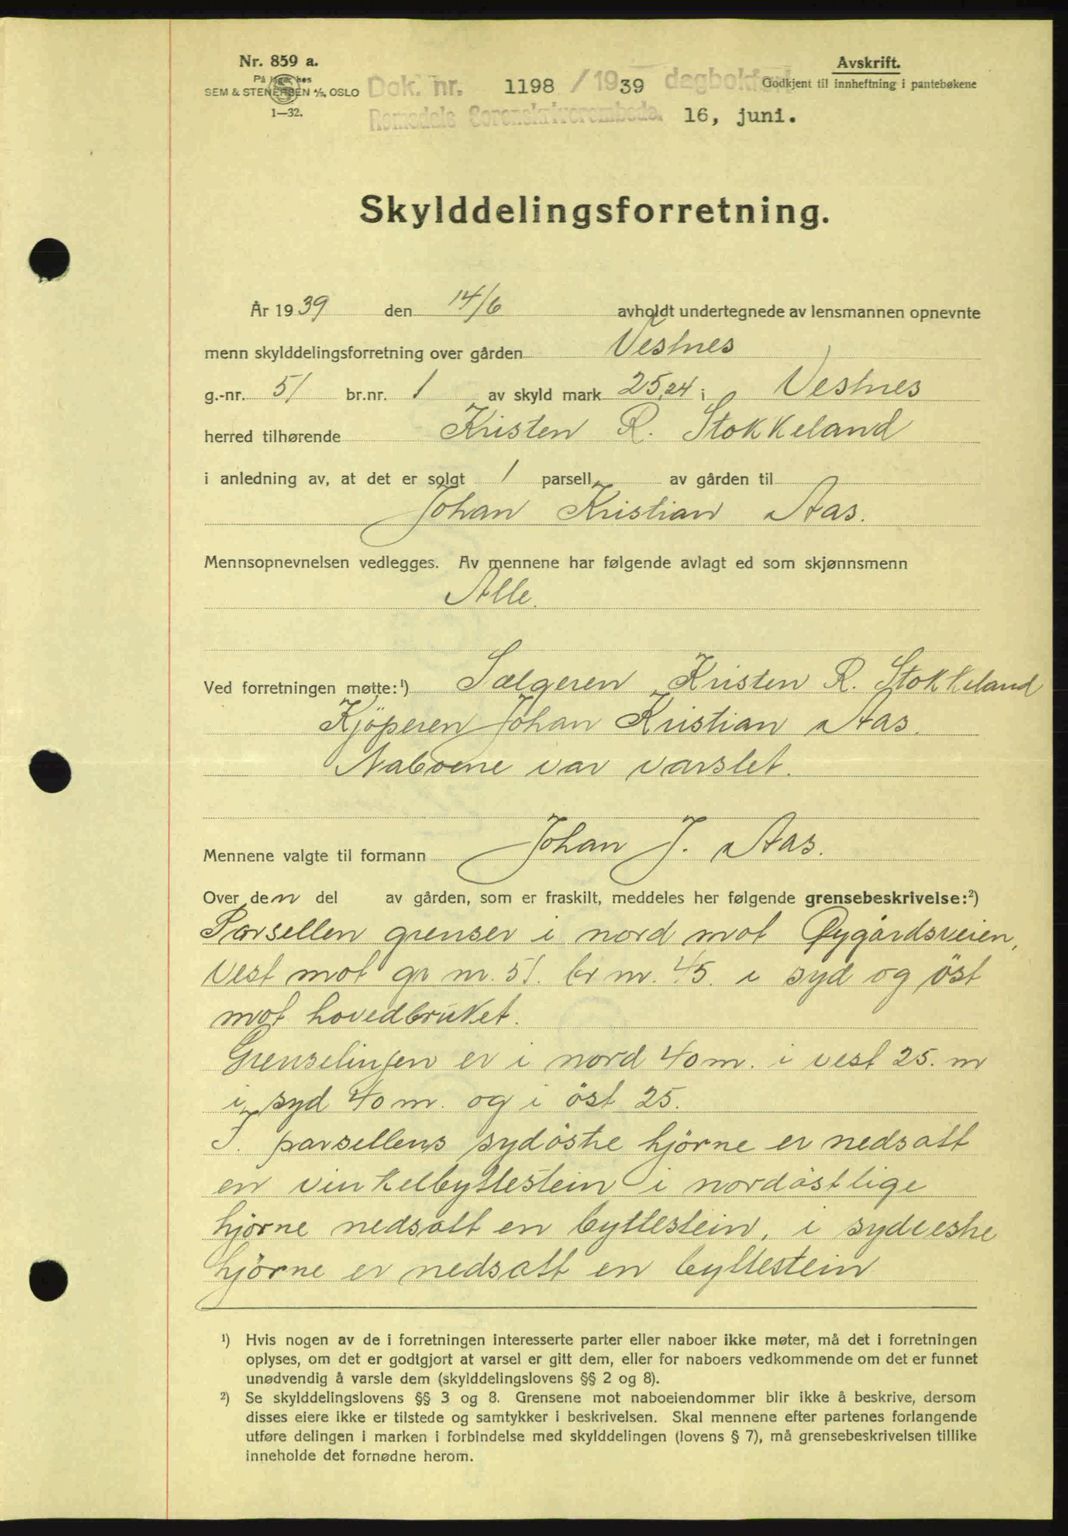 Nr. 859 a.
På lager hos
SEM & STENERSEN A/S, OSLO
1—32.
Avskrift.
Godkjent til innheftning i pantebøkene
Dok. nr. 1198 / 1939 dagbokført
Romsdals Sorenskriverembede. 16, juni.
Skylddelingsforretning.
År 1939 den 14/6 avholdt undertegnede av lensmannen opnevnte
menn skylddelingsforretning over gården Vestnes
g.-nr. 51 br.nr. 1 av skyld mark 25,24 i Vestnes
herred tilhørende Kristen R. Stokkeland
i anledning av, at det er solgt 1 parsell av gården til
Johan Kristian Aas.
Mennsopnevnelsen vedlegges. Av mennene har følgende avlagt ed som skjønnsmenn
Alle.
Ved forretningen møtte:¹) Sælgeren Kristen R. Stokkeland
Kjöperen Johan Kristian Aas.
Naboene var varslet.
Mennene valgte til formann Johan J. Aas.
Over den del av gården, som er fraskilt, meddeles her følgende grensebeskrivelse:²)
Parsellen grenser i nord mot Øygårdsveien,
vest mot gr nr. 51. br nr. 45. i syd og öst
mot hovedbruket.
Grenselinjen er i nord 40 m. i vest 25. m
i syd 40 m. og i öst 25.
I. parsellens sydöstre hjörne er nedsatt
en vinkelbyttestein i nordöstlige
hjörne nedsatt en byttestein, i sydvestre
hjörne er nedsatt en byttestein
¹) Hvis nogen av de i forretningen interesserte parter eller naboer ikke møter, må det i forretningen
oplyses, om det er godtgjort at varsel er gitt dem, eller for naboers vedkommende om det er funnet
unødvendig å varsle dem (skylddelingslovens §§ 2 og 8).
²) Se skylddelingslovens §§ 3 og 8. Grensene mot naboeiendommer blir ikke å beskrive, dersom
disses eiere ikke er tilstede og samtykker i beskrivelsen. Skal mennene efter partenes forlangende
utføre delingen i marken i forbindelse med skylddelingen (lovens § 7), må grensebeskrivelsen tillike
inneholde det fornødne herom.